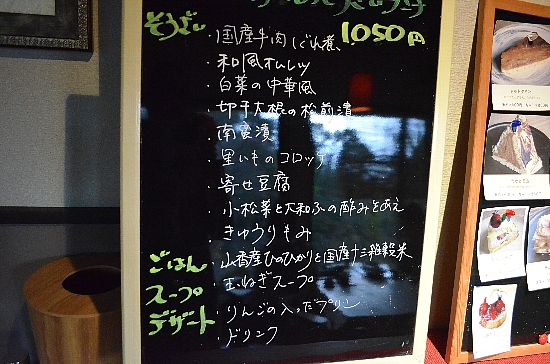 そうざい
1,050円
・国産牛肉しぐれ煮
・和風オムレツ
・白菜の中華風
・切干大根の松前漬
・南蛮漬
・里いものコロッケ
・寄せ豆腐
・小松菜と大和ふの酢みそあえ
・きゅうりもみ
ごはん ・山香産ひのひかりと国産十二雑穀米
スープ ・玉ねぎスープ
デザート ・りんごの入ったプリン
・ドリンク